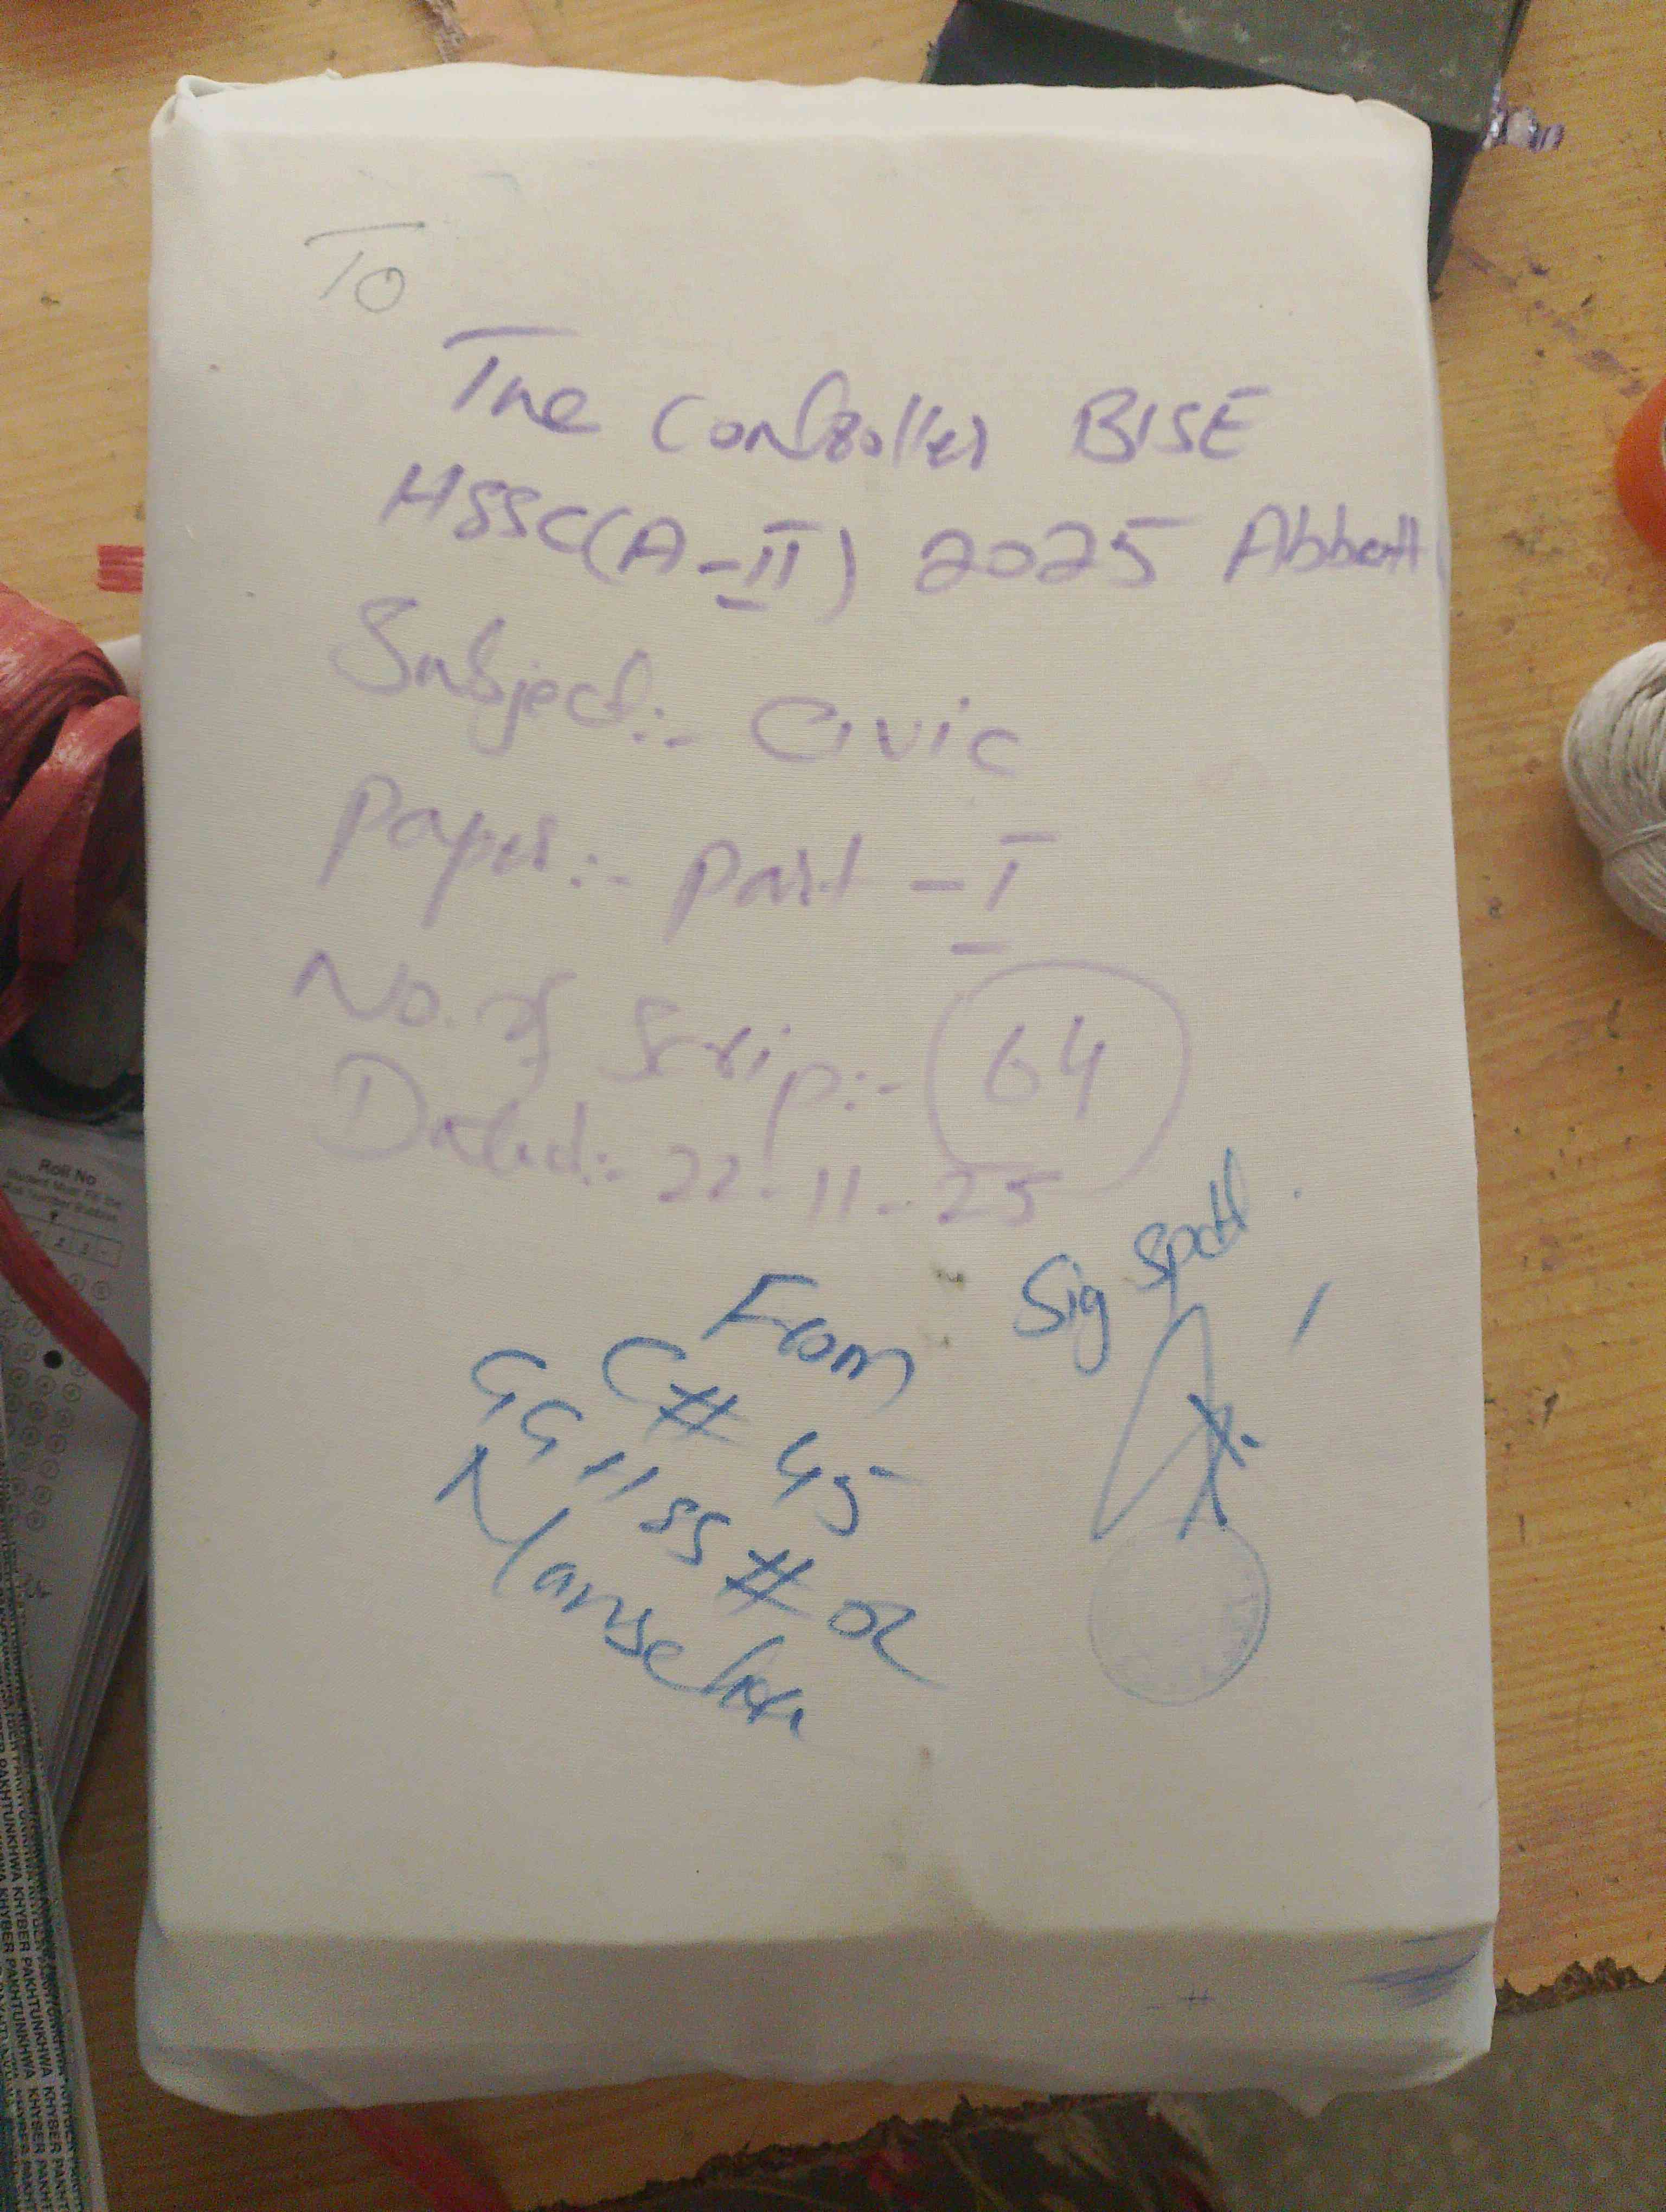 To
The Controller BISE
HSSC(A-II) 2025 Abbott
Subject:- Civic
Paper:- Part - I
No. of Srip:- 64
Dated:- 22-11-25
Sig Spdt
From
C# 45
GGHSS # 02
Mansehra
Roll No
KHYBER PAKHTUNKHWA KHYBER PAKHTUNKHWA